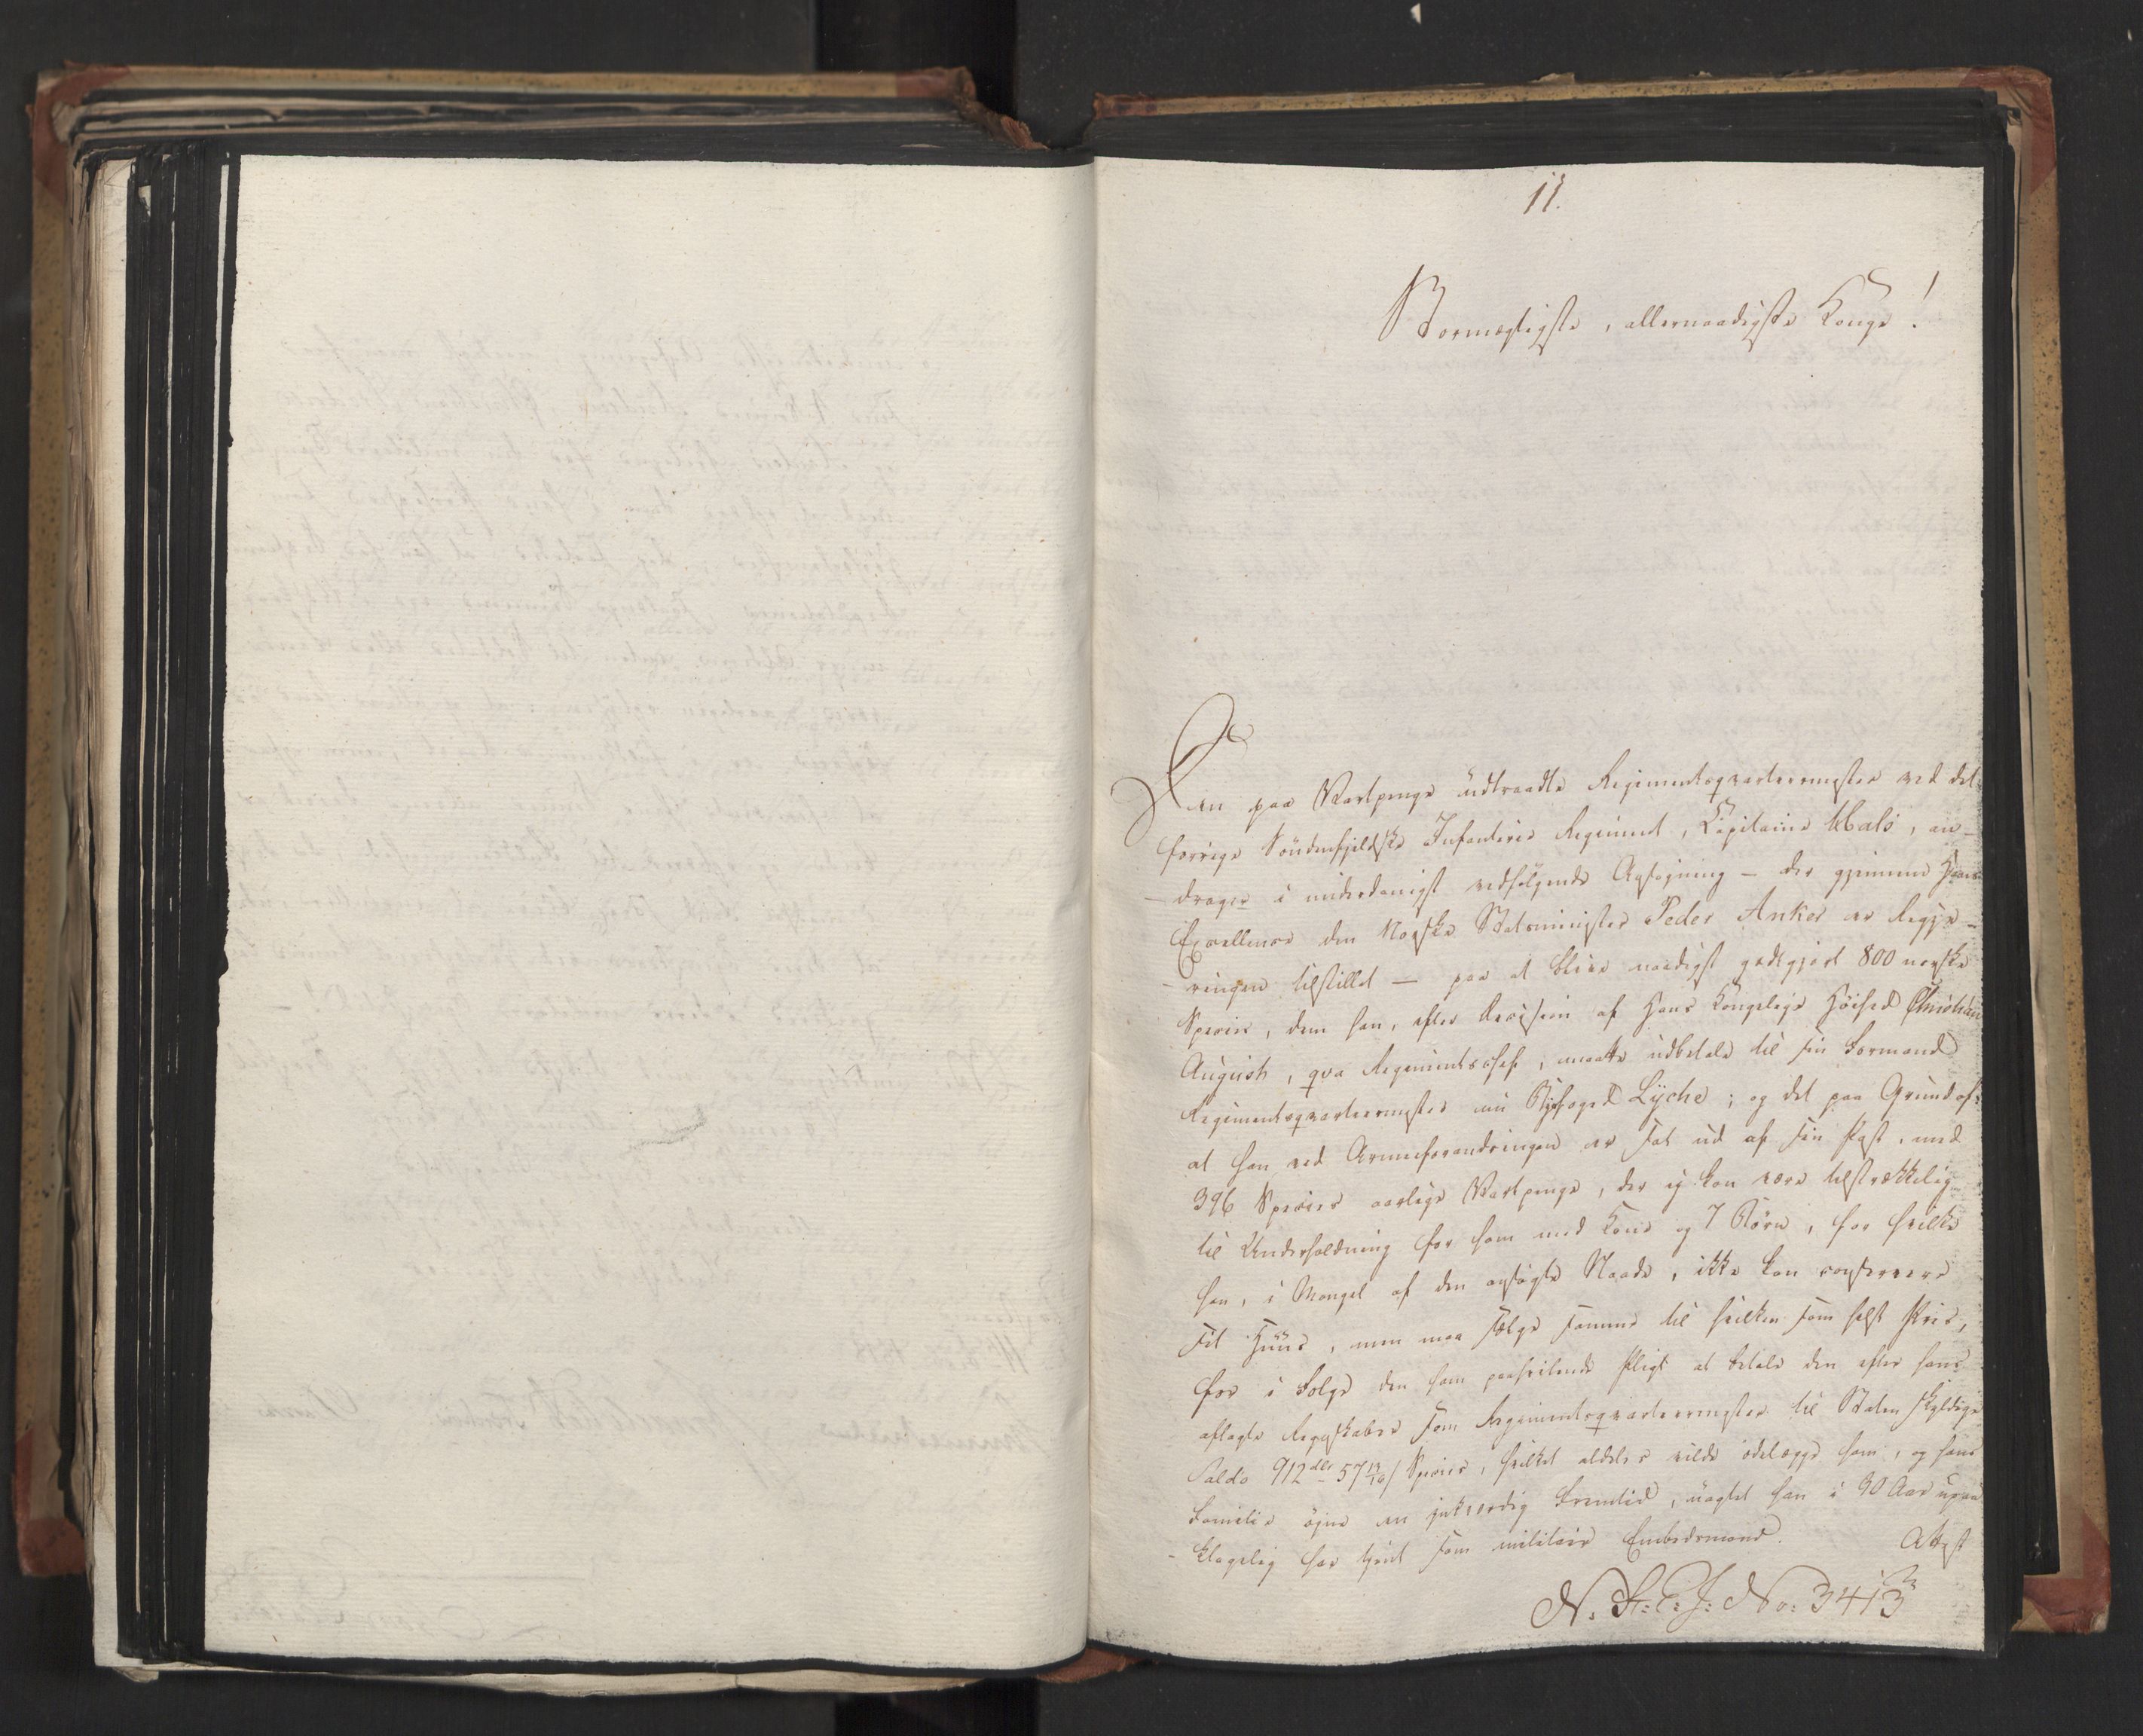 11.
Stormægtigste, allernaadigste Konge!
Den paa Vartpenge udtraadte Regimentsqvarteermester ved det
forrige Söndenfjeldske Infanterie Regiment, Capitaine Wals, an-
-drager i underdanigst vedfølgende Ansøgning - der gjennem Hans
Excellence den Norske Statsminister Peder Anker er Regje-
-ringen tilstillet — paa at blive naadigst godtgjort 800 norske
Species, dem han, efter Decision af Hans Kongelige Höihed Christian
August, qva Regimentschef, maatte udbetale til sin Formand
Regimentsqvarteermester nu Byefoged Lyche; og det paa Grund af:
at han ved Armeeforandringen er sat ud af sin Post, med
396 Species aarlige Vartpenge, der ej kan være tilstrækkelig
til Underholdning for ham med Kone og 7 Börn, for hvilke
han, i Mangel af den ansøgte Naade, ikke kan conservere
sit Huus, men maa sælge samme til hvilken som helst Priis,
for i Følge den ham paahvilende Pligt at betale den efter hans
aflagte Regnskaber som Regimentsqvarteermester til Staten skyldige
Saldo 912 dlr 57 13/16 / Species, hvilket aldeles vilde ödelægge ham, og hans
Familie øjne en ynkværdig Fremtid, uagtet han i 30 Aar upaa
-klagelig har tjent som militair Embedsmand.
Attest
N. St: E: J: No: 3413